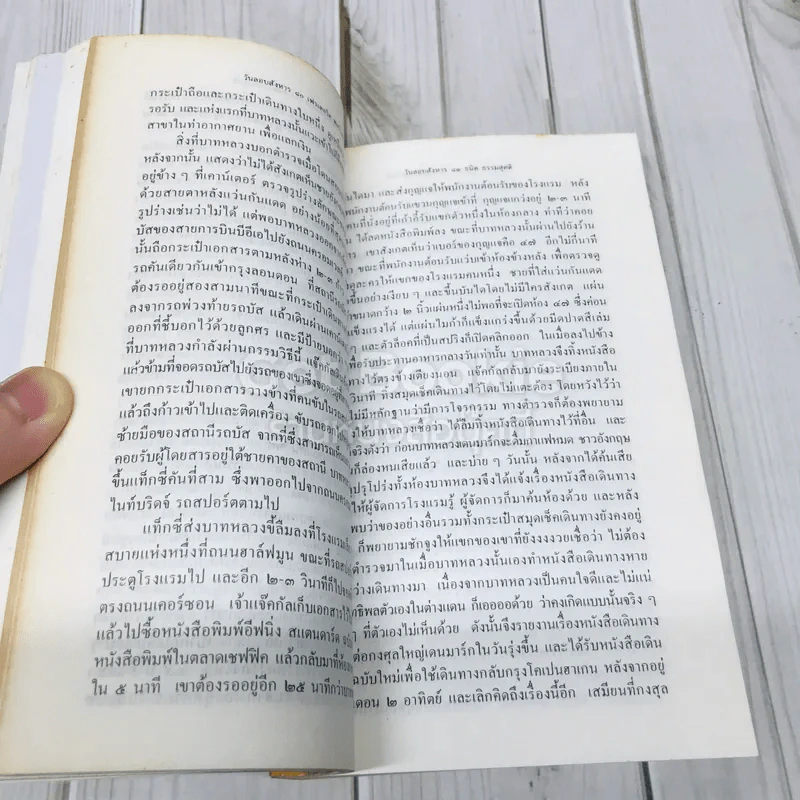 วันลอบสังหาร ๘๐
กระเป๋าถือและกระเป๋าเดินทางใบหนึ่ง
รอรับ และแห่งแรกที่บาทหลวงนั้นแวะเข้าไป
สาขาในท่าอากาศยาน เพื่อแลกเงิน
สิ่งที่บาทหลวงบอกตำรวจเมื่อ
หลังจากนั้น แสดงว่าไม่ได้สังเกตเห็นชาย
อยู่ข้าง ๆ ที่เคาน์เตอร์ ตรวจรูปร่าง
ด้วยสายตาหลังแว่นกันแดด อย่างน้อย
รูปร่างเช่นว่าไม่ได้ แต่พอบาทหลวงออก
บัสของสายการบินบีอีเอไปยังถนนครอมเวลล์
นั้นถือกระเป๋าเอกสารตามหลังห่าง ๒-๓
รถคันเดียวกันเข้ากรุงลอนดอน ที่สถานี
ต้องรออยู่สองสามนาทีขณะที่กระเป๋าเดินทาง
ลงจากรถพ่วงท้ายรถบัส แล้วเดินผ่าน
ออกที่ชี้บอกไว้ด้วยลูกศร และมีป้ายบอก
ที่บาทหลวงกำลังผ่านกรรมวิธีนี้ แจ๊กกัล
แล้วข้ามที่จอดรถบัสไปยังรถของเขาซึ่งจอด
เขายกกระเป๋าเอกสารวางข้างที่คนขับใน
แล้วถึงก้าวเข้าไปและติดเครื่อง ขับรถออก
ซ้ายมือของสถานีรถบัส จากที่ซึ่งสามารถ
คอยรับผู้โดยสารอยู่ใต้ชายคาของสถานี บาทหลวง
ขึ้นแท็กซี่คันที่สาม ซึ่งพาออกไปจากถนน
ไนท์บริดจ์ รถสปอร์ตตามไป
แท็กซี่ส่งบาทหลวงขี้ลืมลงที่โรงแรม
สบายแห่งหนึ่งที่ถนนฮาล์ฟมูน ขณะที่รถ
ประตูโรงแรมไป และอีก ๒-๓ วินาทีก็ไป
ตรงถนนเคอร์ซอน เจ้าแจ๊กกัลเก็บเอกสารไว้
แล้วไปซื้อหนังสือพิมพ์อีฟนิ่ง สแตนดาร์ด
หนังสือพิมพ์ในตลาดเชฟฟิค แล้วกลับมาที่
ใน ๕ นาที เขาต้องรออยู่อีก ๒๕ นาทีกว่า
วันลอบสังหาร ๘๑ ธนิต ธรรมสุคติ
ันไดมา และส่งกุญแจให้พนักงานต้อนรับของโรงแรม หลัง
พนักงานต้อนรับแขวนกุญแจเข้าที่ กุญแจแกว่งอยู่ ๒-๓ นาที
คนที่นั่งอยู่ที่เก้าอี้รับแขกตัวหนึ่งในห้องกลาง ทำทีว่าคอย
ได้ลดหนังสือพิมพ์ลง ขณะที่บาทหลวงนั้นผ่านไปยังร้าน
เขาสังเกตเห็นว่าเบอร์ของกุญแจคือ ๔๗ อีกไม่กี่นาที
า ขณะที่พนักงานต้อนรับแว่บเข้าห้องข้างหลัง เพื่อตรวจดู
ดูละครให้แขกของโรงแรมคนหนึ่ง ชายที่ใส่แว่นกันแดด
ขึ้นอย่างเงียบ ๆ และขึ้นบันไดโดยไม่มีใครสังเกต แผ่น
ขนาดกว้าง ๒ นิ้วแผ่นหนึ่งไม่พอที่จะเปิดห้อง ๔๗ ซึ่งค่อน
แข็งแรงได้ แต่แผ่นไมก้าก็แข็งแกร่งขึ้นด้วยมีดปาดสีเล่ม
ๆ และตัวล็อคที่เป็นสปริงก็เปิดคลิกออก ในเมื่อลงไปข้าง
เพื่อรับประทานอาหารกลางวันเท่านั้น บาทหลวงจึงทิ้งหนังสือ
ทางไว้ตรงข้างเตียงนอน แจ๊กกัลกลับมายังระเบียงภายใน
วินาที ทิ้งสมุดเช็คเดินทางไว้โดยไม่แตะต้อง โดยหวังไว้ว่า
ไม่มีหลักฐานว่ามีการโจรกรรม ทางตำรวจก็ต้องพยายาม
ให้บาทหลวงเชื่อว่า ได้ลืมทิ้งหนังสือเดินทางไว้ที่อื่น และ
จริงดังว่า ก่อนบาทหลวงเดนมาร์กจะดื่มกาแฟหมด ชาวอังกฤษ
ก็ล่องหนเสียแล้ว และบ่าย ๆ วันนั้น หลังจากได้ค้นเสีย
ปรุโปร่งทั้งห้องบาทหลวงจึงได้แจ้งเรื่องหนังสือเดินทาง
ให้ผู้จัดการโรงแรมรู้ ผู้จัดการก็มาค้นห้องด้วย และหลัง
พบว่าของอย่างอื่นรวมทั้งกระเป๋าสมุดเช็คเดินทางยังคงอยู่
ก็พยายามชักจูงให้แขกของเขาที่ยังงงงวยเชื่อว่า ไม่ต้อง
ตำรวจมาในเมื่อบาทหลวงนั้นเองทำหนังสือเดินทางหาย
ว่างเดินทางมา เนื่องจากบาทหลวงเป็นคนใจดีและไม่แน่
ทธิพลตัวเองในต่างแดน ก็เออออด้วย ว่าคงเกิดแบบนั้นจริง ๆ
ๆ ที่ตัวเองไม่เห็นด้วย ดังนั้นจึงรายงานเรื่องหนังสือเดินทาง
ต่อกงศุลใหญ่เดนมาร์กในวันรุ่งขึ้น และได้รับหนังสือเดิน
ฉบับใหม่เพื่อใช้เดินทางกลับกรุงโคเปนฮาเกน หลังจากอยู่
เดอน ๒ อาทิตย์ และเลิกคิดถึงเรื่องนี้อีก เสมียนที่กงสุล